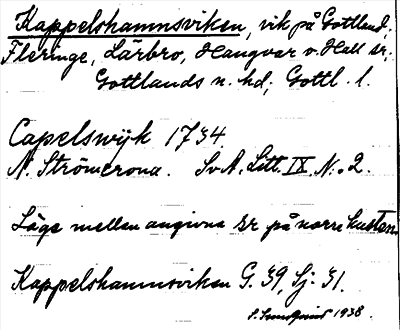 Kappelshamnsviken, vik på Gottland;
Fleringe, Lärbro, Hangvar o. Hall sr;
Gottlands n. hd; Gottl. l.
Capelswÿk 1734.
N. Strömcrona. SvA, Litt. IX N:o 2.
Läge mellan angivna sr på norrkusten
Kappelshamnsviken G. 39, Sj. 31.
1938.